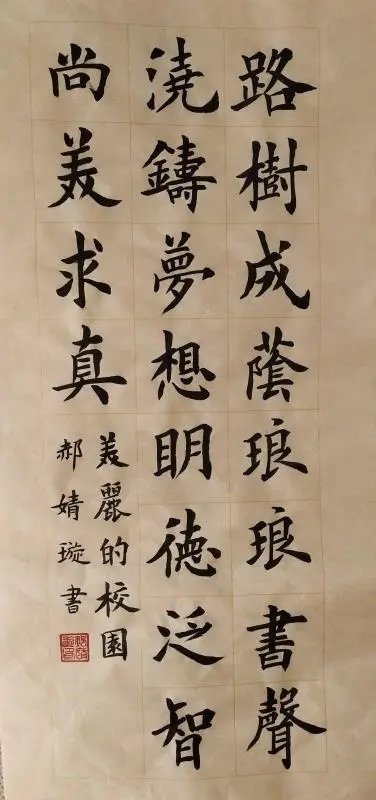 路樹成蔭琅琅書聲
澆鑄夢想明德泛智
尚美求真
美麗的校園
郝婧璇書